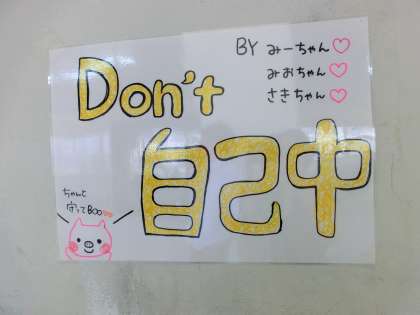 BY みーちゃん♡
みおちゃん♡
さきちゃん♡
Don't
自己中
ちゃんと
守ってBOO♡♡